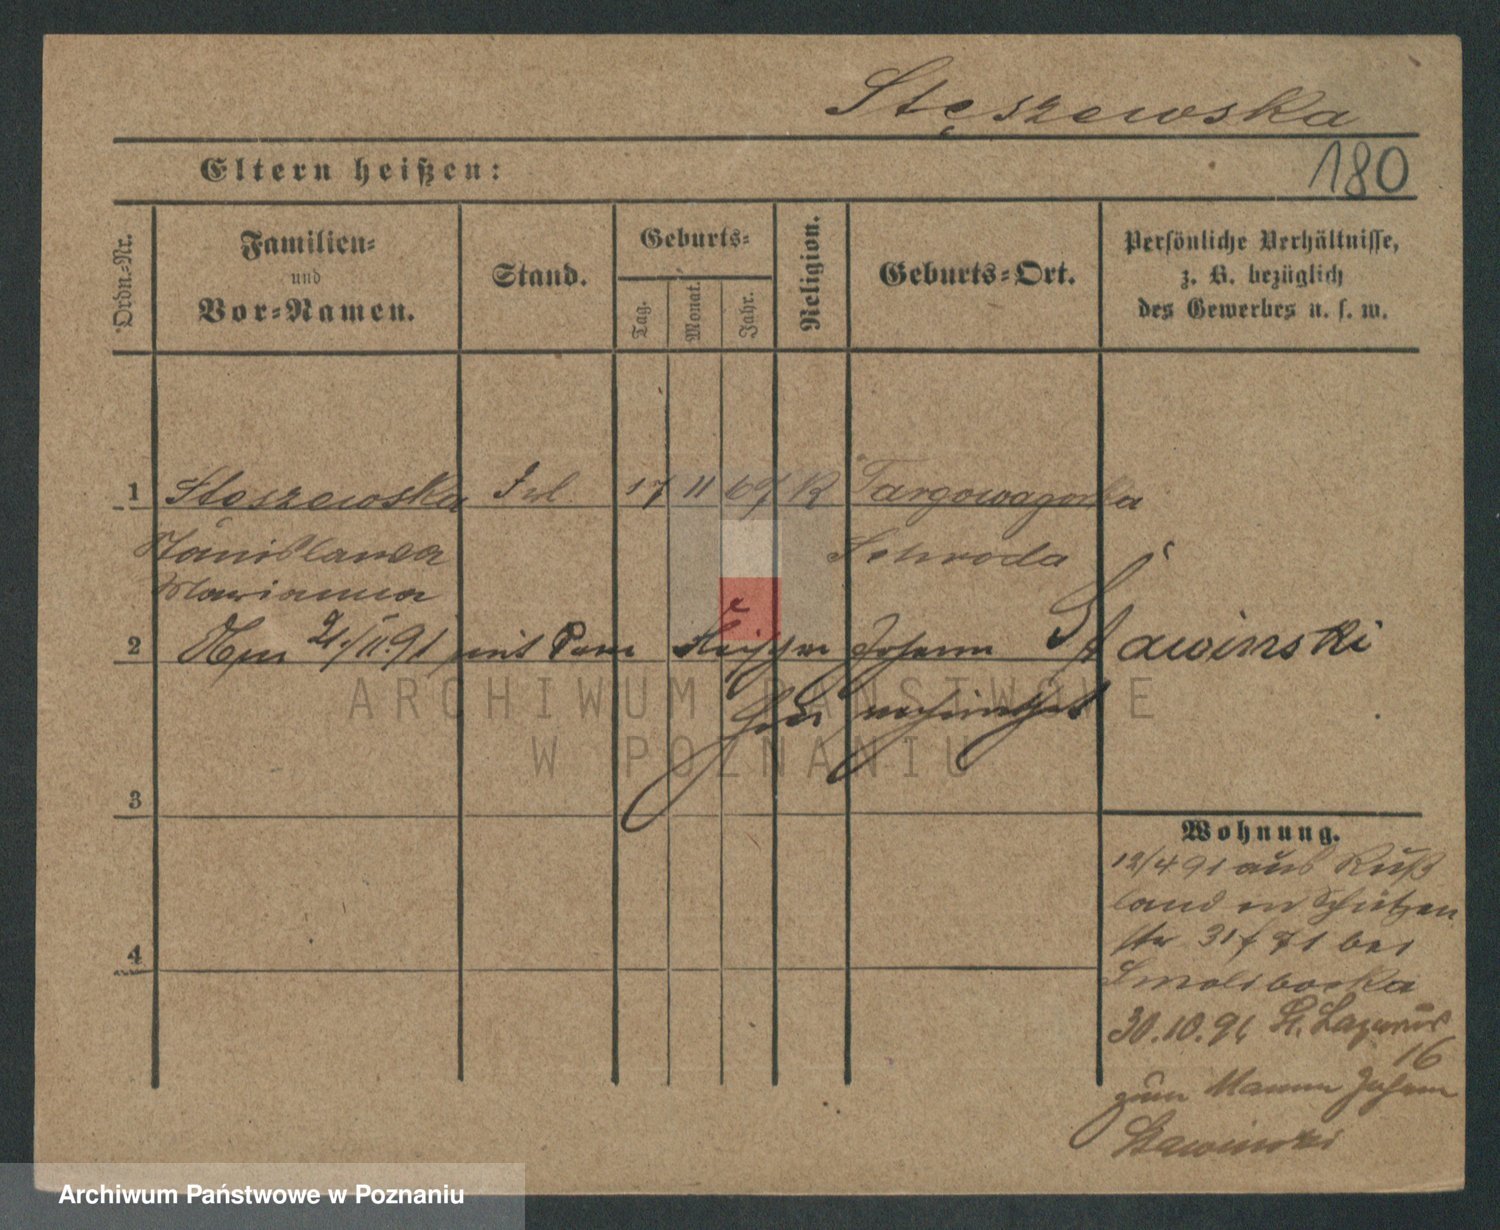 Stęszewska
180
Eltern heißen:
Ordn.-Nr.
Familien-
und
Vor-Namen.
Stand.
Geburts-
Tag.
Monat.
Jahr.
Religion.
Geburts-Ort.
Persönliche Verhältnisse,
z. B. bezüglich
des Gewerbes u. s. w.
1 Steszewska 17 11 69 K Targowagorka
Stanislawa Schroda
Marianna
2 21/11.91 mit dem Johann Stawinski
hier verheirathet
3
4
Wohnung.
12/4 91 aus Ruß
land in Schützen
str 31 bei
30.10.91 St. Lazarus
16
zum Manne Johann
Stawinski
ARCHIWUM PAŃSTWOWE
W POZNANIU
Archiwum Państwowe w Poznaniu